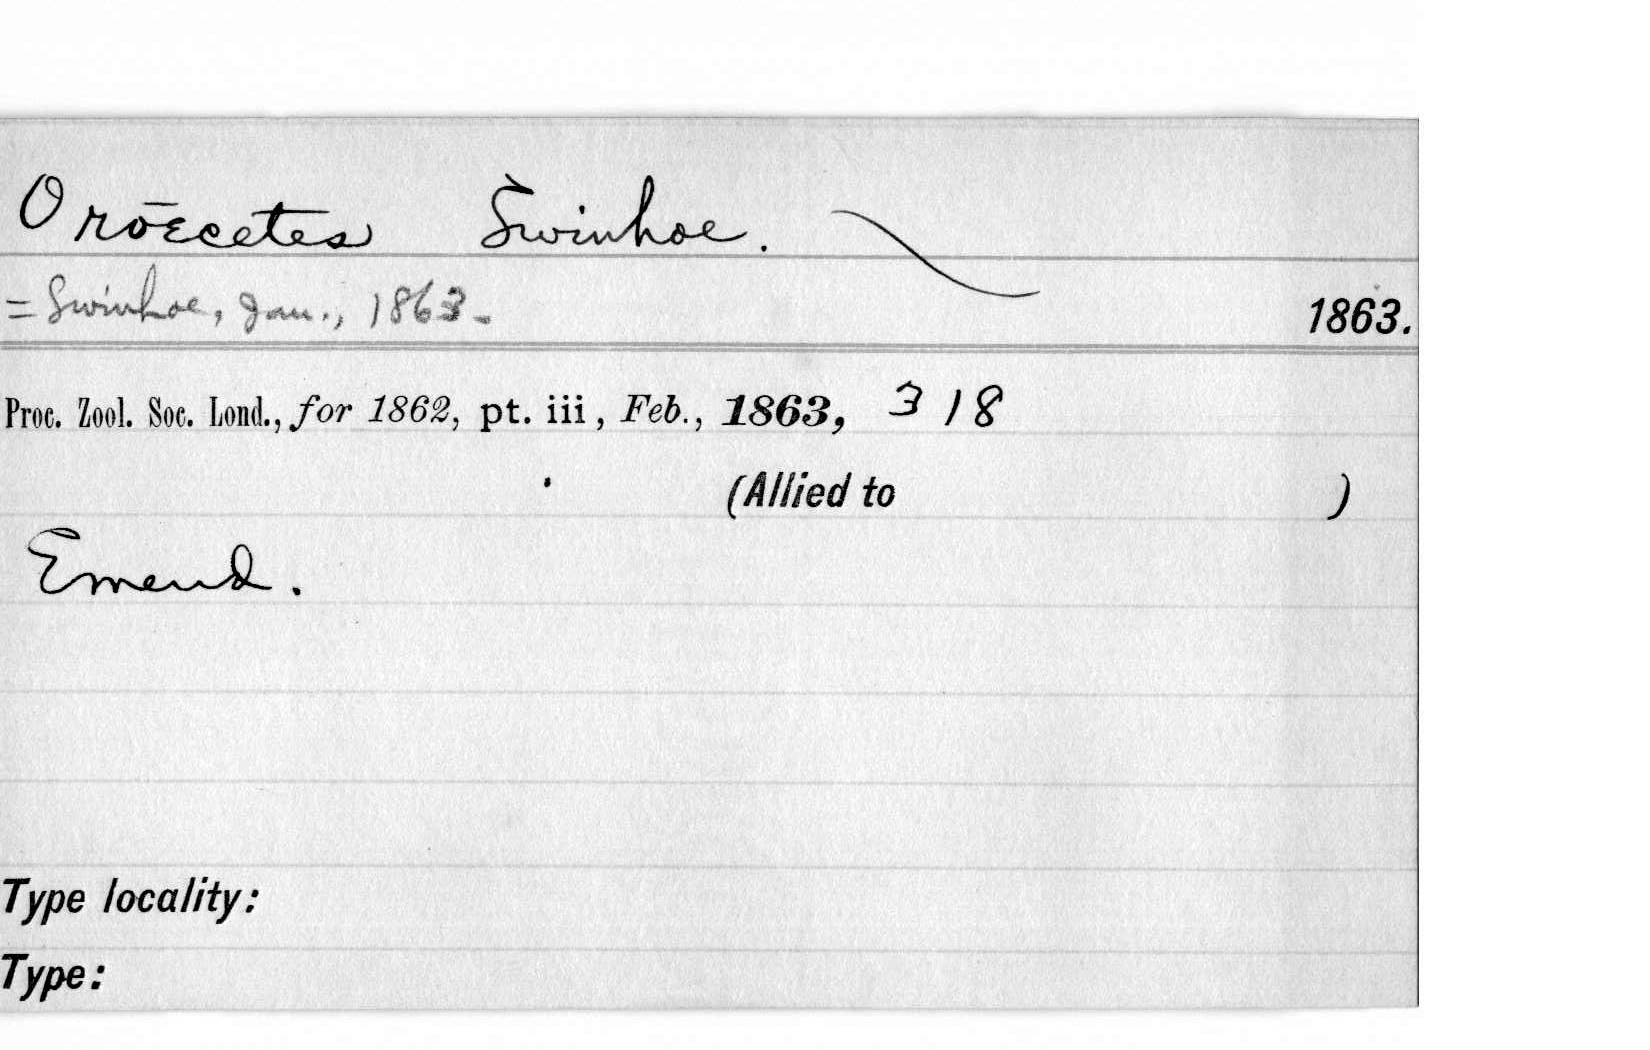 Orōecetes Swinhoe.
= Swinhoe, Jan., 1863.
1863.
Proc. Zool. Soc. Lond., for 1862, pt. iii, Feb., 1863, 318
(Allied to )
Emend.
Type locality:
Type: